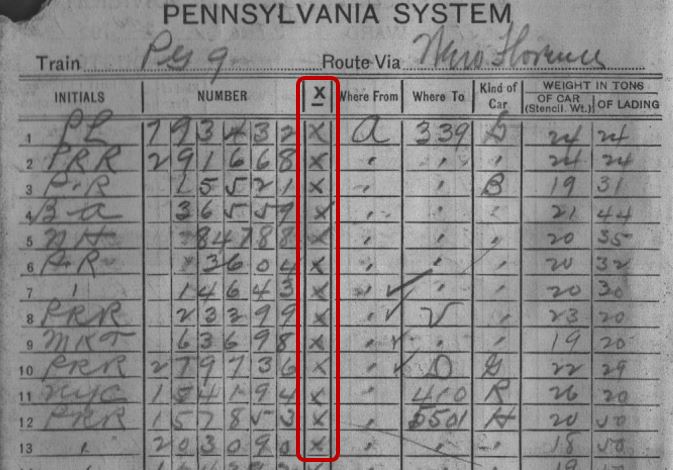 PENNSYLVANIA SYSTEM
Train Route Via New Florence
INITIALS NUMBER X Where From Where To Kind of Car WEIGHT IN TONS
OF CAR (Stencil. Wt.) OF LADING
1 PL 793432 X A 339 G 24 24
2 PRR 291668 X " " " 24 24
3 P.R 15521 X " " B 19 31
4 B-A 36559 X " " " 21 44
5 NH 84788 X " " " 20 35
6 P.R 3604 X " " " 20 32
7 " 14643 X " " " 20 30
8 PRR 23299 X " V " 23 20
9 MKT 63698 X " " " 19 20
10 PRR 279736 X " D G 22 29
11 NYC 154194 X " 410 R 26 20
12 PRR 157853 X " 5501 H 20 50
13 " 203090 X " " " 18 50